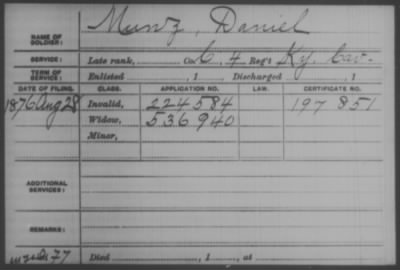 Munz, Daniel
NAME OF SOLDIER:
SERVICE: Late rank, Co. C, 4 Reg't Ky. Cav.
TERM OF SERVICE: Enlisted , 1 Discharged , 1
DATE OF FILING. CLASS. APPLICATION NO. LAW. CERTIFICATE NO.
1876 Aug 28 Invalid, 224 584 197 851
Widow, 536 940
Minor,
ADDITIONAL SERVICES:
REMARKS:
77 Died , 1 , at